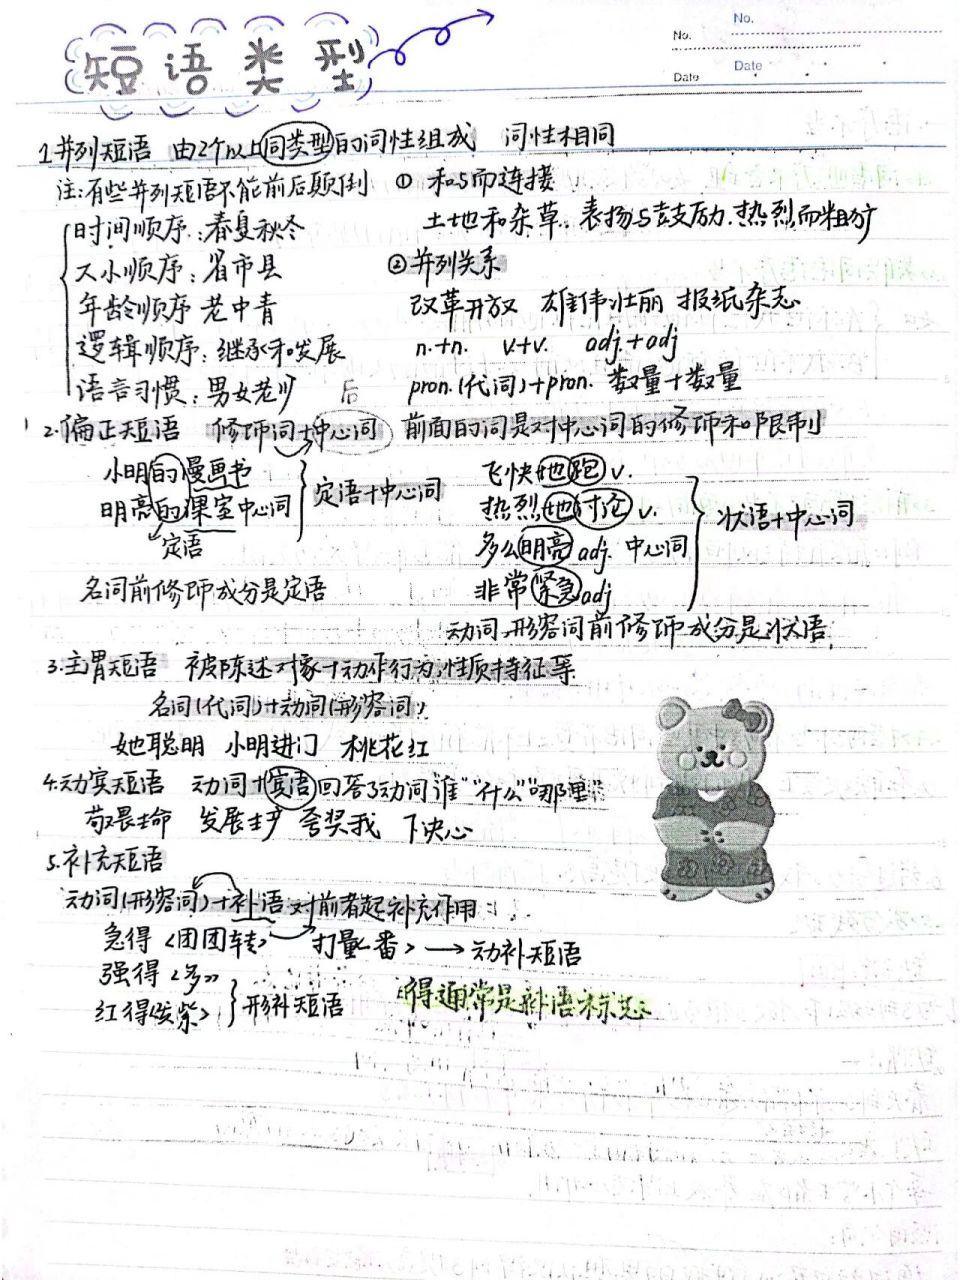 短语类型
No.
No.
Date
Date
1.并列短语 由2个以上同类型的词性组成 词性相同
注:有些并列短语不能前后颠倒 ① 和与而连接
时间顺序:春夏秋冬 土地和杂草. 表扬与鼓励. 热烈而粗犷
大小顺序:省市县 ②并列关系
年龄顺序 老中青 改革开放 雄伟壮丽 报纸杂志
逻辑顺序:继承和发展 n.+n. v.+v. adj.+adj
语言习惯:男女老少 后 pron.(代词)+pron. 数量+数量
2.偏正短语 修饰词+中心词 前面的词是对中心词的修饰和限制
小明的漫画书 定语+中心词 飞快地跑 v.
明亮的课室中心词 热烈地讨论 v. 状语+中心词
定语 多么明亮 adj. 中心词
名词前修饰成分是定语 非常紧急adj
动词、形容词前修饰成分是状语.
3.主谓短语 被陈述对象+动作行为,性质特征等
名词(代词)+动词(形容词)
她聪明 小明进门 桃花红
4.动宾短语 动词+宾语 回答了动词谁"什么""哪里"
敬畏生命 发展生产 夸奖我 下决心
5.补充短语
动词(形容词)+补语 对前者起补充作用
急得<团团转> 打量<一番> → 动补短语
强得<多>
红得<发紫> 形补短语 得通常是补语标志